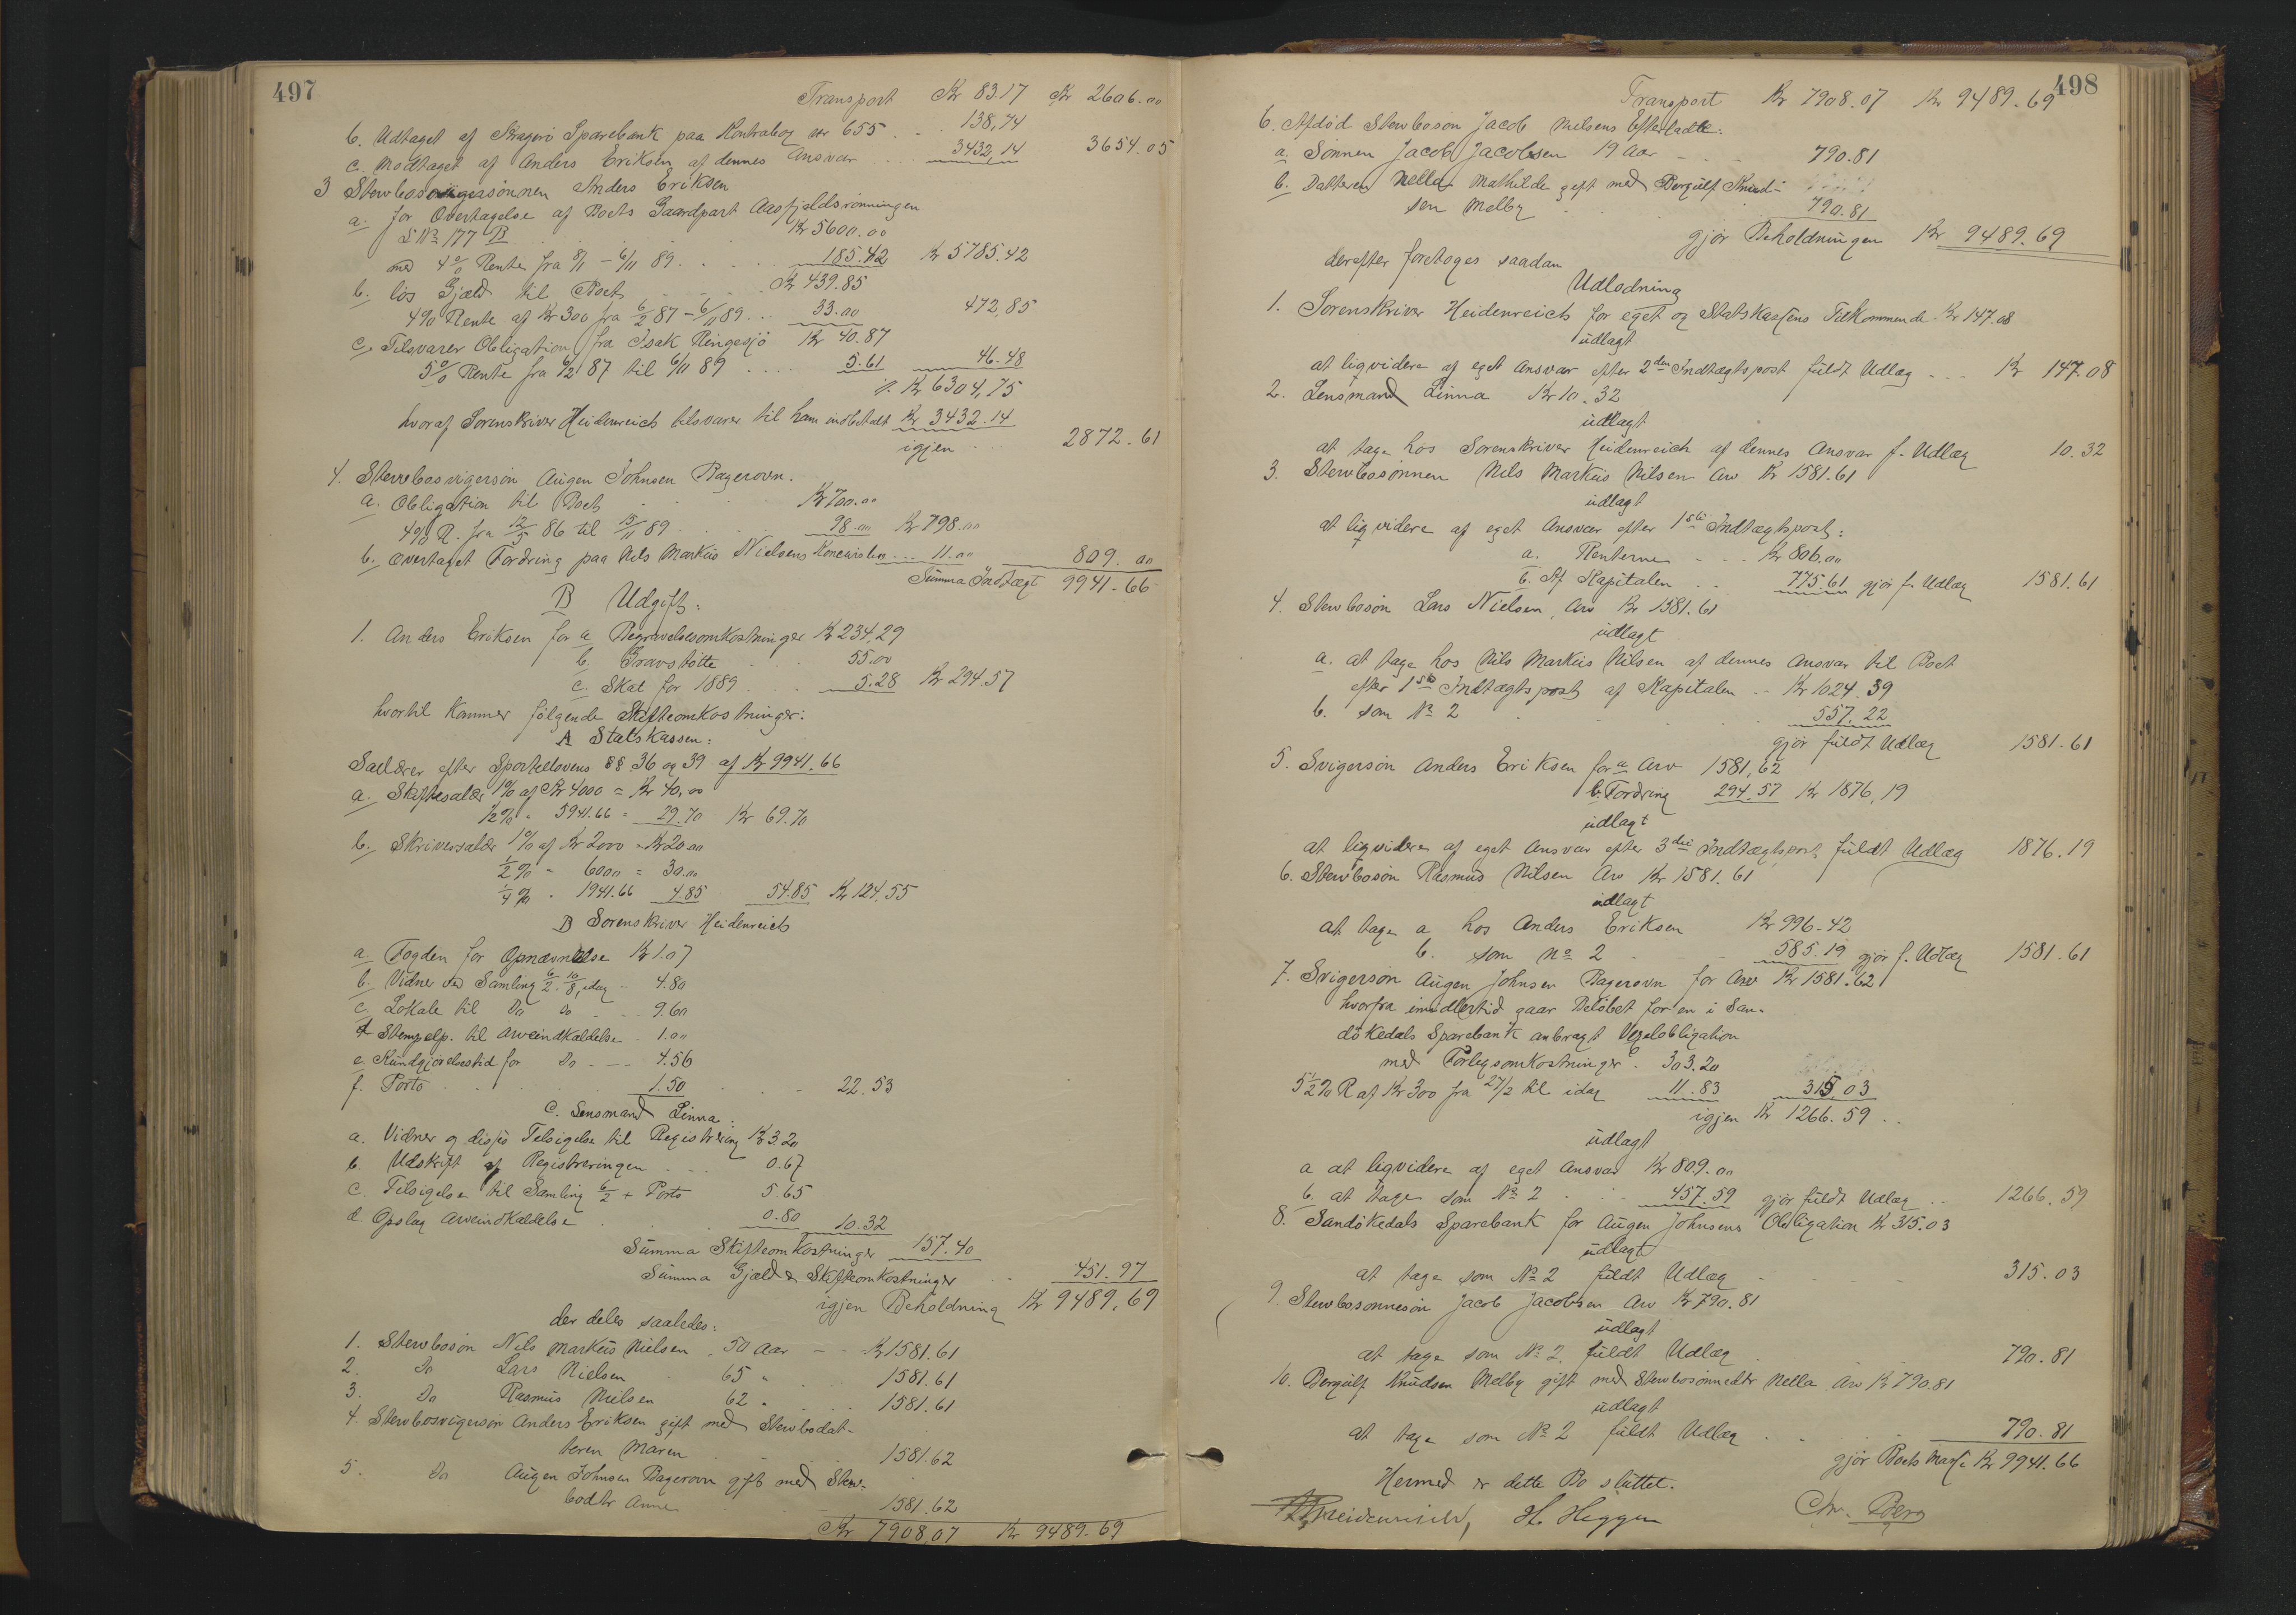 497
Transport Kr 83.17 Kr 2606.00
b. Udtaget af Kragerö Sparebank paa Kontrabog No 655 138,74
c. Modtaget af Anders Eriksen af dennes Ansvar 3432,14 3654.05
3 Stervbosvigersønnen Anders Eriksen
a. for Overtagelse af Boets Gaardpart Aasfjeldsrønningen
L No 177 B Kr 5600.00
med 4% Rente fra 8/1 - 6/11 89. 185.42 Kr 5785.42
b. løs Gjæld til Boet Kr 439.85
4% Rente af Kr 300 fra 6/2 87 - 6/11 89 33.00 472,85
c. Tilsvarer Obligation fra Isak Ringesjö Kr 40.87
5% Rente fra 6/2 87 til 6/11 89 5.61 46.48
Kr 6304,75
hvoraf Sorenskriver Heidenreich tilsvarer til ham indbetalt Kr 3432.14
igjen 2872.61
4. Stervbosvigersøn Augen Johnsen Bagerovn.
a. Obligation til Boet Kr 700.00
4% R. fra 12/5 86 til 15/11 89 98.00 Kr 798.00
b. Overtaget Fordring paa Nils Markus Nielsens Kone 11.00 809.00
Summa Indtægt 9941.66
B Udgift:
1. Anders Eriksen for a Begravelsesomkostninger Kr 234,29
b. Gravstøtte 55.00
c. Skat for 1889 5.28 Kr 294.57
hvortil kommer følgende Skifteomkostninger:
A Statskassen:
Sallærer efter Sportellovens §§ 36 og 39 af Kr 9941.66
a. Skiftesalær 1% af Kr 4000 = Kr 40,00
1/2% " 5941.66 = 29.70 Kr 69.70
b. Skriversalær 1% af Kr 2000 = Kr 20.00
1/2% " 6000 = 30.00
1/4% " 1941.66 4.85 54.85 Kr 124.55
B Sorenskriver Heidenreich
a. Fogden for Opnævnelse Kr 1.07
b. Vidner ved Samling 6/2. 10/8, idag 4.80
c. Lokale til Do Do 9.60
d Stempelp. til Arveindkaldelse 1.00
e. Kundgjørelsestid for Do 4.56
f. Porto 1.50 22.53
C. Lensmand Linna:
a. Vidner og disses Tilsigelse til Registrering Kr 3.20
b. Udskrift af Registreringen 0.67
c. Tilsigelse til Samling 6/2 + Porto 5.65
d. Opslag Arveindkaldelse 0.80 10.32
Summa Skifteomkostninger 157.40
Summa Gjæld & Skifteomkostninger 451.97
igjen Beholdning Kr 9489,69
der deles saaledes:
1. Stervbosøn Nils Markus Nielsen 50 Aar Kr 1581.61
2. Do Lars Nielsen 65 " 1581.61
3. Do Rasmus Nielsen 62 " 1581.61
4. Stervbosvigersøn Anders Eriksen gift med Stervbodat-
teren Maren 1581.62
5. Do Augen Johnsen Bagerovn gift med Sterv-
bodtr Anne 1581.62
Kr 7908,07 Kr 9489.69
498
Transport Kr 7908.07 Kr 9489.69
6. Afdöd Stervbosøn Jacob Nilsens Efterladte:
a. Sönnen Jacob Jacobsen 19 Aar 790.81
b. Datteren Nella Mathilde gift med Bergulf Knud-
sen Melby 790.81
gjør Beholdningen Kr 9489.69
derefter foretoges saadan
Udlodning
1. Sorenskriver Heidenreich for eget og Statskassens Tilkommende Kr 147.08
udlagt
at liqvidere af eget Ansvar efter 2den Indtægtspost fuldt Udlæg Kr 147.08
2. Lensmand Linna Kr 10.32
udlagt
at tage hos Sorenskriver Heidenreich af dennes Ansvar f. Udlæg 10.32
3. Stervbosønnen Nils Markus Nilsen Arv Kr 1581.61
udlagt
at liqvidere af eget Ansvar efter 1ste Indtægtspost:
a. Renterne Kr 806,00
b. Af Kapitalen 775.61 gjør f. Udlæg 1581.61
4. Stervbosøn Lars Nielsen Arv Kr 1581.61
udlagt
a. at tage hos Nils Markus Nilsen af dennes Ansvar til Boet
efter 1ste Indtægtspost af Kapitalen Kr 1024.39
b. som No 2 557.22
gjør fuldt Udlæg 1581.61
5. Svigersøn Anders Eriksen for a Arv 1581,62
b. Fordring 294.57 Kr 1876,19
udlagt
at liqvidere af eget Ansvar efter 3die Indtægtspost fuldt Udlæg 1876.19
6. Stervbosøn Rasmus Nilsen Arv Kr 1581.61
udlagt
at tage a hos Anders Eriksen Kr 996.42
b. som No 2 585.19 gjør f. Udlæg 1581.61
7. Svigersøn Augen Johnsen Bagerovn for Arv Kr 1581.62
hvorfra imidlertid gaar Beløbet for en i San-
dökedals Sparebank anbragt Vexelobligation
med Forligsomkostninger 303.20
5 1/2% R af Kr 300 fra 27/2 til idag 11.83 315,03
igjen Kr 1266.59
udlagt
a at liqvidere af eget Ansvar Kr 809.00
b. at tage som No 2 457.59 gjør fuldt Udlæg 1266.59
8. Sandökedals Sparebank for Augen Johnsens Obligation Kr 315.03
udlagt
at tage som No 2 fuldt Udlæg 315.03
9. Stervbosønnesøn Jacob Jacobsen Arv Kr 790.81
udlagt
at tage som No 2 fuldt Udlæg 790.81
10. Bergulf Knudsen Melby gift med Stervbosønnedtr Nella Arv Kr 790.81
udlagt
at tage som No 2 fuldt Udlæg 790.81
gjør Boets Masse Kr 9941.66
Hermed er dette Bo sluttet.
Heidenreich, H. Heggen Chr. Berg